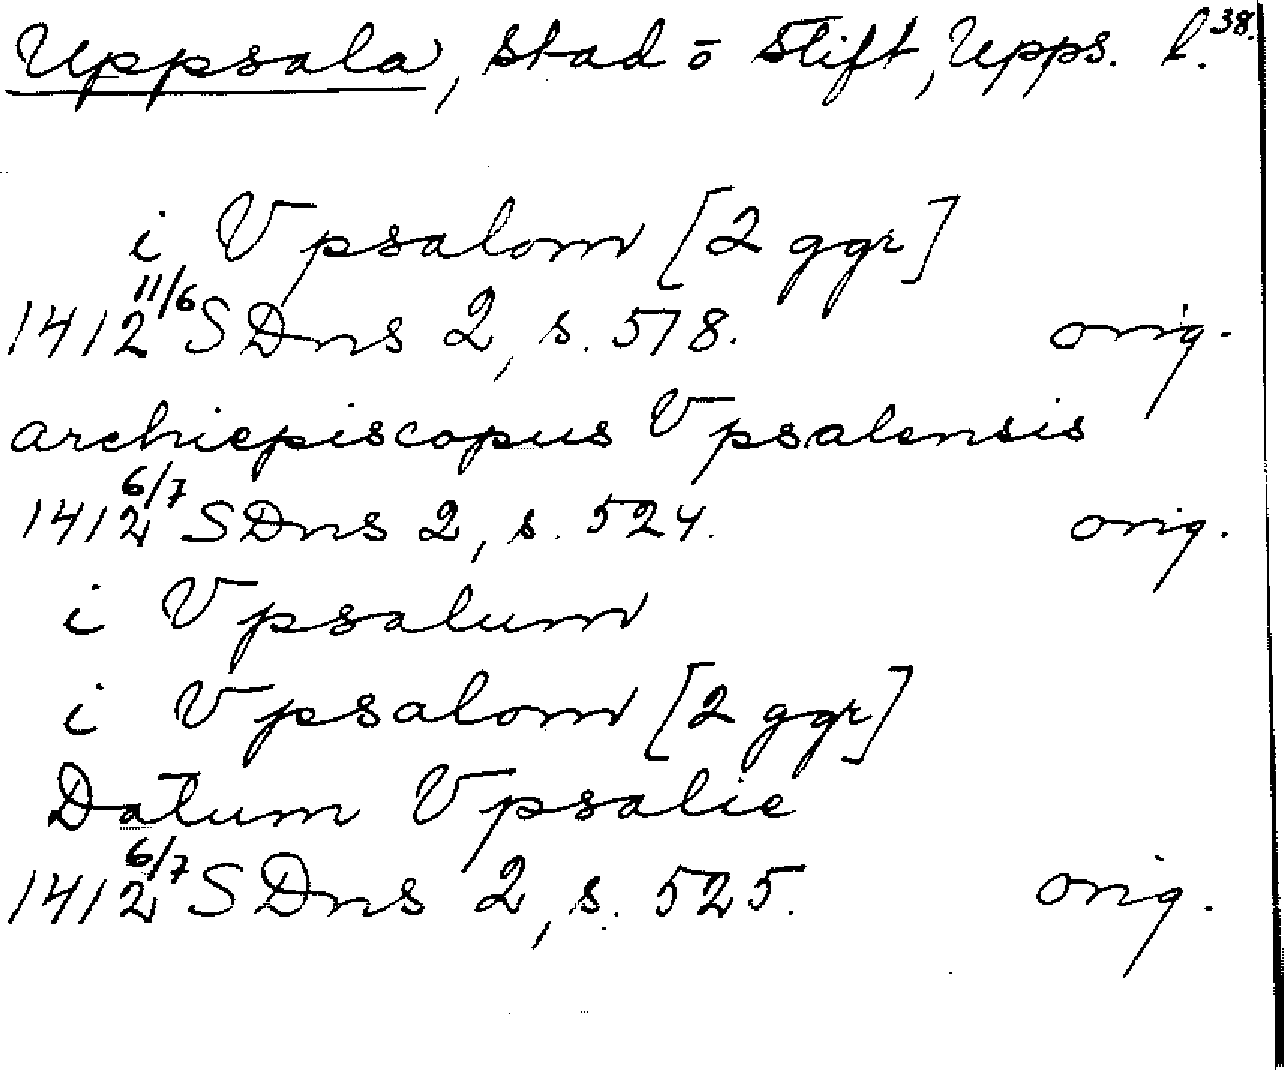 Uppsala, stad ō stift, Upps. l. 38.
i Vpsalom [2 ggr]
1412 11/6 SDns 2, s. 518. orig.
archiepiscopus Vpsalensis
1412 6/7 SDns 2, s. 524. orig.
i Vpsalum
i Vpsalom [2 ggr]
Datum Vpsalie
1412 6/7 SDns 2, s. 525. orig.